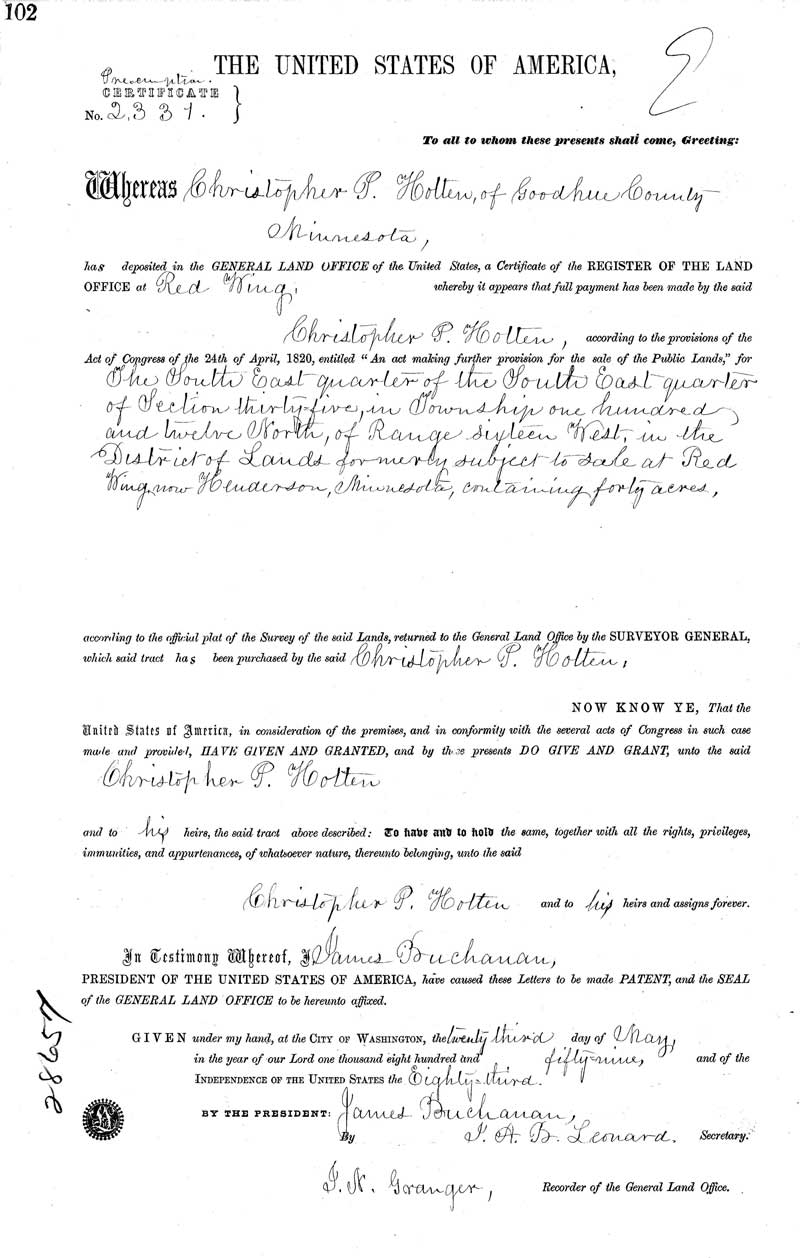 102
THE UNITED STATES OF AMERICA,
Preemption.
CERTIFICATE
No. 2,331.
To all to whom these presents shall come, Greeting:
Whereas Christopher P. Holten, of Goodhue County
Minnesota,
has deposited in the GENERAL LAND OFFICE of the United States, a Certificate of the REGISTER OF THE LAND
OFFICE at Red Wing, whereby it appears that full payment has been made by the said
Christopher P. Holten, according to the provisions of the
Act of Congress of the 24th of April, 1820, entitled "An act making further provision for the sale of the Public Lands," for
The South East quarter of the South East quarter
of Section thirty-five, in Township one hundred
and twelve North, of Range sixteen West, in the
District of Lands formerly subject to sale at Red
Wing, now Henderson, Minnesota, containing forty acres,
according to the official plat of the Survey of the said Lands, returned to the General Land Office by the SURVEYOR GENERAL,
which said tract has been purchased by the said Christopher P. Holten,
NOW KNOW YE, That the
United States of America, in consideration of the premises, and in conformity with the several acts of Congress in such case
made and provided, HAVE GIVEN AND GRANTED, and by these presents DO GIVE AND GRANT, unto the said
Christopher P. Holten
and to his heirs, the said tract above described: To have and to hold the same, together with all the rights, privileges,
immunities, and appurtenances, of whatsoever nature, thereunto belonging, unto the said
Christopher P. Holten and to his heirs and assigns forever.
In Testimony Whereof, I, James Buchanan,
PRESIDENT OF THE UNITED STATES OF AMERICA, have caused these Letters to be made PATENT, and the SEAL
of the GENERAL LAND OFFICE to be hereunto affixed.
GIVEN under my hand, at the CITY OF WASHINGTON, the twenty third day of May,
in the year of our Lord one thousand eight hundred and fifty-nine, and of the
INDEPENDENCE OF THE UNITED STATES the Eighty-third.
BY THE PRESIDENT: James Buchanan,
By J. A. B. Leonard. Secretary.
J. N. Granger, Recorder of the General Land Office.
28657